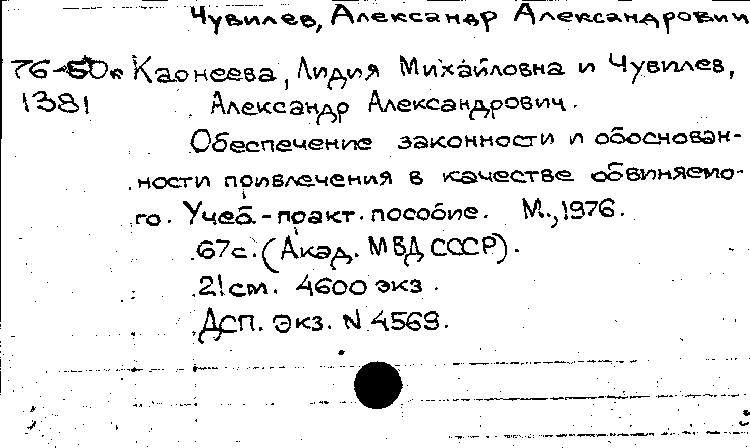 Чувилев, Александр Александрович
76-50п Карнеева, Лидия Михайловна и Чувилев,
1381 Александр Александрович.
Обеспечение законности и обоснован-
ности привлечения в качестве обвиняемо-
го. Учеб.-практ. пособие. М., 1976.
67с. (Акад. МВД СССР).
21см. 4600 экз.
Дсп. Экз. N 4569.